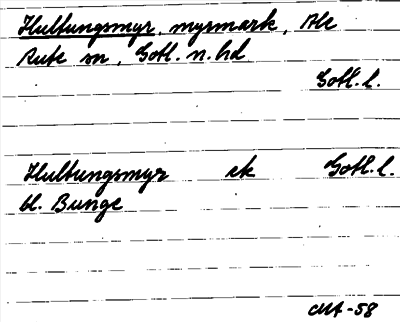 Hultungsmyr, myrmark, Ale
Rute sn, Gotl. n. hd
Gotl. l.
Hultungsmyr ek Gotl. l.
bl. Bunge
MA-58